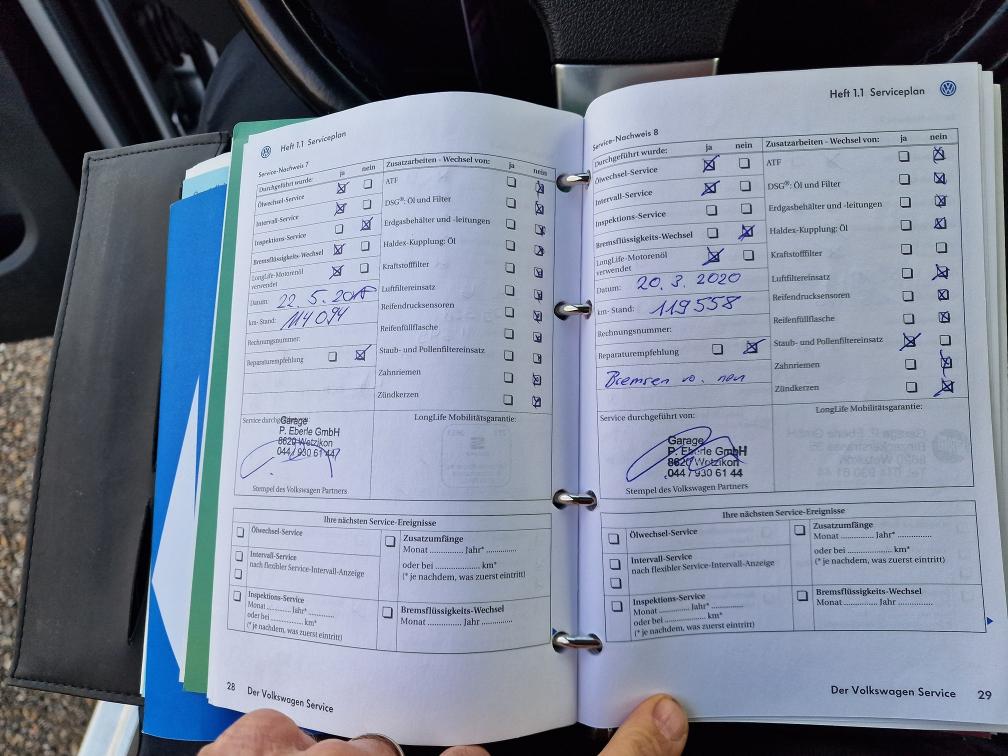 Heft 1.1 Serviceplan
Service-Nachweis 7
Durchgeführt wurde: ja nein
Ölwechsel-Service
Intervall-Service
Inspektions-Service
Bremsflüssigkeits-Wechsel
LongLife-Motorenöl
verwendet
Datum: 22. 5.
km- Stand: 114 094
Rechnungsnummer:
Reparaturempfehlung
Zusatzarbeiten - Wechsel von: ja nein
ATF
DSG®: Öl und Filter
Erdgasbehälter und -leitungen
Haldex-Kupplung: Öl
Kraftstofffilter
Luftfiltereinsatz
Reifendrucksensoren
Reifenfüllflasche
Staub- und Pollenfiltereinsatz
Zahnriemen
Zündkerzen
Service durchgeführt
Garage
P. Eberle GmbH
8620 Wetzikon
044 / 930 61 44
Stempel des Volkswagen Partners
LongLife Mobilitätsgarantie:
Ihre nächsten Service-Ereignisse
Ölwechsel-Service
Intervall-Service
nach flexibler Service-Intervall-Anzeige
Inspektions-Service
Monat ............ Jahr* ............
oder bei ............ km*
(* je nachdem, was zuerst eintritt)
Zusatzumfänge
Monat ............ Jahr* ............
oder bei ............ km*
(* je nachdem, was zuerst eintritt)
Bremsflüssigkeits-Wechsel
Monat ............ Jahr ............
28 Der Volkswagen Service
Heft 1.1 Serviceplan
Service-Nachweis 8
Durchgeführt wurde: ja nein
Ölwechsel-Service
Intervall-Service
Inspektions-Service
Bremsflüssigkeits-Wechsel
LongLife-Motorenöl
verwendet
Datum: 20. 3. 2020
km- Stand: 119 558
Rechnungsnummer:
Reparaturempfehlung
Bremsen vo. neu
Zusatzarbeiten - Wechsel von: ja nein
ATF
DSG®: Öl und Filter
Erdgasbehälter und -leitungen
Haldex-Kupplung: Öl
Kraftstofffilter
Luftfiltereinsatz
Reifendrucksensoren
Reifenfüllflasche
Staub- und Pollenfiltereinsatz
Zahnriemen
Zündkerzen
Service durchgeführt von:
Garage
P. Eberle GmbH
8620 Wetzikon
044 / 930 61 44
Stempel des Volkswagen Partners
LongLife Mobilitätsgarantie:
Ihre nächsten Service-Ereignisse
Ölwechsel-Service
Intervall-Service
nach flexibler Service-Intervall-Anzeige
Inspektions-Service
Monat ............ Jahr* ............
oder bei ............ km*
(* je nachdem, was zuerst eintritt)
Zusatzumfänge
Monat ............ Jahr* ............
oder bei ............ km*
(* je nachdem, was zuerst eintritt)
Bremsflüssigkeits-Wechsel
Monat ............ Jahr ............
Der Volkswagen Service 29